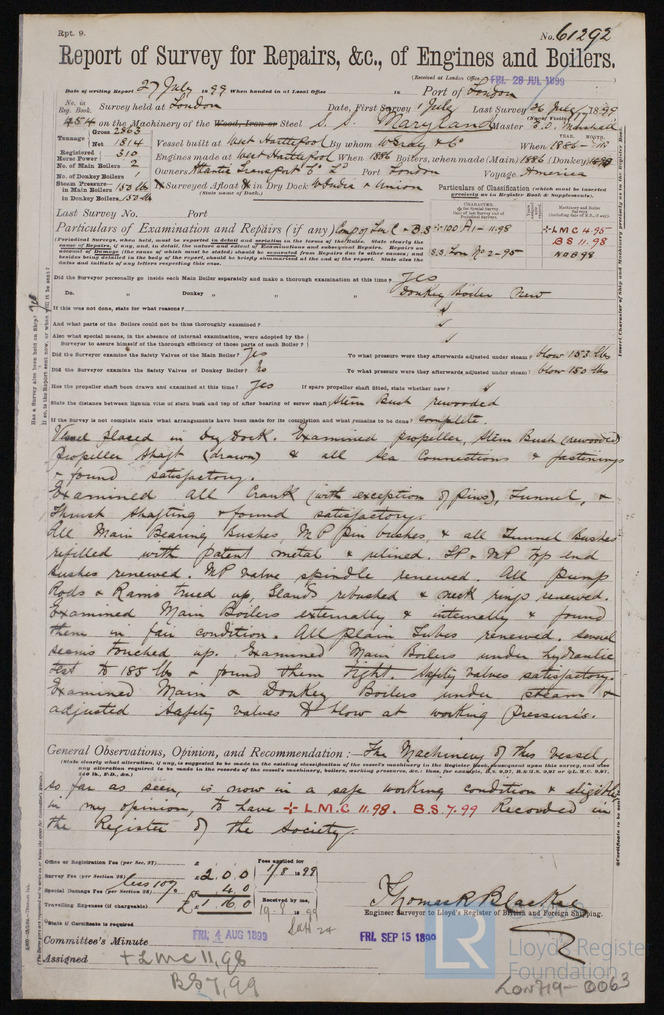 Rpt. 9.
No. 61292
Report of Survey for Repairs, &c., of Engines and Boilers.
(Received at London Office FRI. 28 JUL 1899)
Date of writing Report 27 July 1899 When handed in at Local Office 18 Port of London
No. in Reg. Book. Survey held at London Date, First Survey July Last Survey 26 July 1899
454 on the Machinery of the Wood, Iron or Steel S. S. Maryland Master
Tonnage Gross 2863
Net 1814
Vessel built at West Hartlepool By whom W Gray & Co When 1886
Registered Horse Power 310
Engines made at West Hartlepool When 1886 Boilers, when made (Main) 1886 (Donkey) 1898
No. of Main Boilers 2
Owners Atlantic Transport Co Ld Port London Voyage America
No. of Donkey Boilers 1
Steam Pressure in Main Boilers 150 lb
in Donkey Boilers 150 lb
If Surveyed Afloat or in Dry Dock W India & Union
(State name of Dock.)
Particulars of Classification (which must be inserted precisely as in Register Book & Supplements).
Last Survey No. Port
Particulars of Examination and Repairs (if any) Comp of LMC & B.S
+100 A1 - 11.98
+LMC 4.95
BS 11.98
S.S. Lon No 2-95
NDB 98
Did the Surveyor personally go inside each Main Boiler separately and make a thorough examination at this time? Yes
Do. " Donkey " " " Donkey Boiler New
If this was not done, state for what reasons?
And what parts of the Boilers could not be thus thoroughly examined?
Also what special means, in the absence of internal examination, were adopted by the Surveyor to assure himself of the thorough efficiency of those parts of each Boiler?
Did the Surveyor examine the Safety Valves of the Main Boiler? Yes To what pressure were they afterwards adjusted under steam? blow 153 lbs
Did the Surveyor examine the Safety Valves of Donkey Boiler? To what pressure were they afterwards adjusted under steam? blow 150 lbs
Has the propeller shaft been drawn and examined at this time? Yes If spare propeller shaft fitted, state whether new?
State the distance between lignum vitæ of stern bush and top of after bearing of screw shaft Stern Bush rewooded
If the Survey is not complete state what arrangements have been made for its completion and what remains to be done? Complete.
Vessel placed in Dry Dock. Examined propeller, Stern Bush (rewooded)
propeller shaft (drawn) & all sea connections & fastenings
& found satisfactory.
Examined all Crank (with exception of pins), Tunnel, &
Thrust shafting & found satisfactory.
All Main Bearing Bushes, MP pin bushes, & all Tunnel Bushes
refilled with patent metal & relined. LP & MP top end
bushes renewed. MP valve spindle renewed. All pump
Rods & Rams trued up, Glands rebushed & neck rings renewed.
Examined Main Boilers externally & internally & found
them in fair condition. All plain Tubes renewed. Several
seams touched up. Examined Main Boilers under hydraulic
test to 185 lbs & found them tight. Safety valves satisfactory.
Examined Main & Donkey Boilers under steam &
adjusted safety valves to blow at working pressures.
General Observations, Opinion, and Recommendation:— The Machinery of this vessel,
so far as seen, is now in a safe working condition & eligible,
in my opinion, to have + L.M.C 11.98. B.S. 7.99 Recorded in
the Register of the Society.
Office or Registration Fee (per Sec. 27) £
Fees applied for
Survey Fee (per Section 28) £ 2.0.0
1/8/1899
Special Damage Fee (per Section 28) less 10% £ 4.0
Received by me,
Travelling Expenses (if chargeable) £ 1.16.0
19-8-1899
Engineer Surveyor to Lloyd's Register of British and Foreign Shipping.
State if Certificate is required
Committee's Minute FRI. 4 AUG 1899 FRI. SEP 15 1899
Assigned + LMC 11,98
BS 7,99
LR
Lloyd's Register
Foundation
LON719-0063